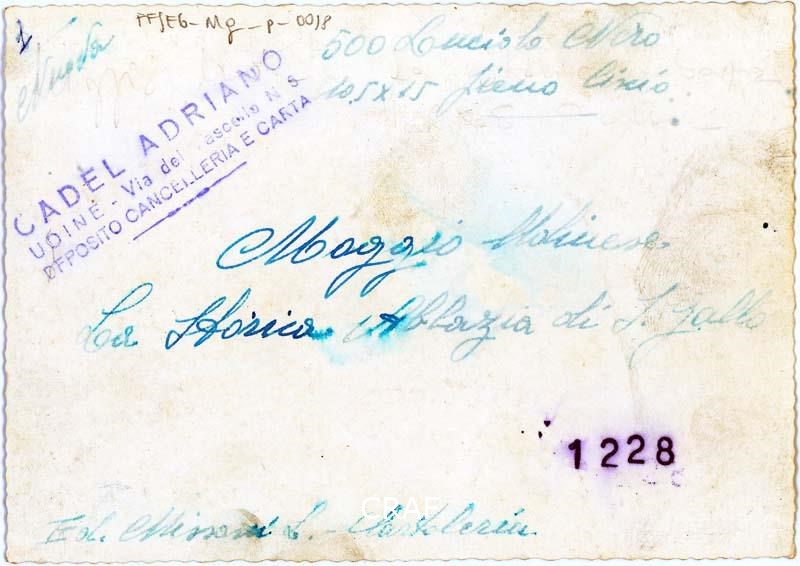 1
PFSEG-Mg-p-0018
Nuova
500 Lucido Nero
10,5x15 pieno
CADEL ADRIANO
UDINE - Via del ascolo N 8
DEPOSITO CANCELLERIA E CARTA
Moggio Udinese
La Storica Abbazia di S. Gallo
1228
CRAF
Ed. Missoni L. - Cartoleria